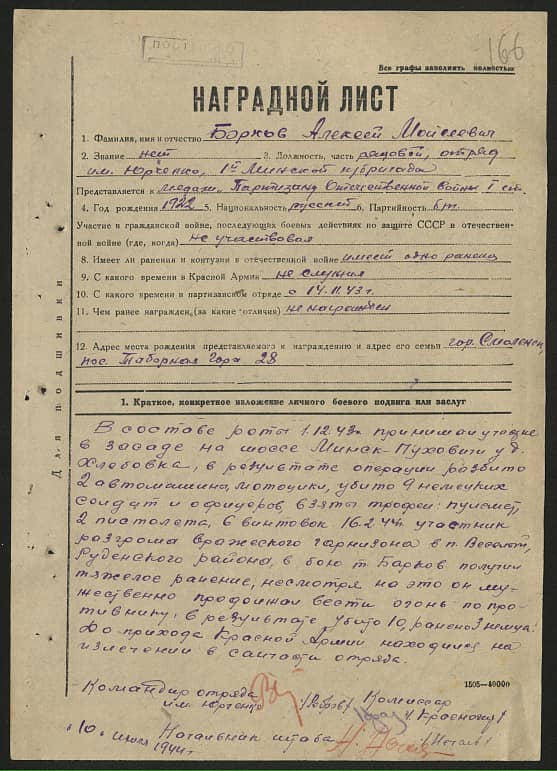 166
Все графы заполнить полностью
НАГРАДНОЙ ЛИСТ
1. Фамилия, имя и отчество Барков Алексей Мойсеевич
2. Звание нет 3. Должность, часть рядовой, отряд
им. Юрченко, 1й Минской п/бригады
Представляется к медали „Партизану Отечественной Войны I ст.
4. Год рождения 1922 5. Национальность русский 6. Партийность б/п.
Участие в гражданской войне, последующих боевых действиях по защите СССР в отечествен-
ной войне (где, когда) не участвовал
8. Имеет ли ранения и контузии в отечественной войне имеет одно ранение
9. С какого времени в Красной Армии не служил
10. С какого времени в партизанском отряде с 14.11.43 г.
11. Чем ранее награжден (за какие отличия) не награжден
12. Адрес места рождения представляемого к награждению и адрес его семьи гор. Смоленск,
пос. Таборная Гора 28
Для подшивки
1. Краткое, конкретное изложение личного боевого подвига или заслуг
В составе роты 1.12.43 г. принимал участие
в засаде на шоссе Минск-Пуховичи у д.
Хлебовка, в результате операции разбито
2 автомашины, мотоцикл, убито 9 немецких
солдат и офицеров, взяты трофеи: пулемет,
2 пистолета, 6 винтовок 16.2.44 г. участник
разгрома вражеского гарнизона в п. Веселом,
Руденского района, в бою т. Барков получил
тяжелое ранение, несмотря на это он му-
жественно продолжал вести огонь по про-
тивнику, в результате убито 10, ранено 3 немца.
До прихода Красной Армии находился на
излечении в санчасти отряда.
1505—40000
Командир отряда Комиссар
им. Юрченко
Начальник штаба
"10" июля 1944 г.